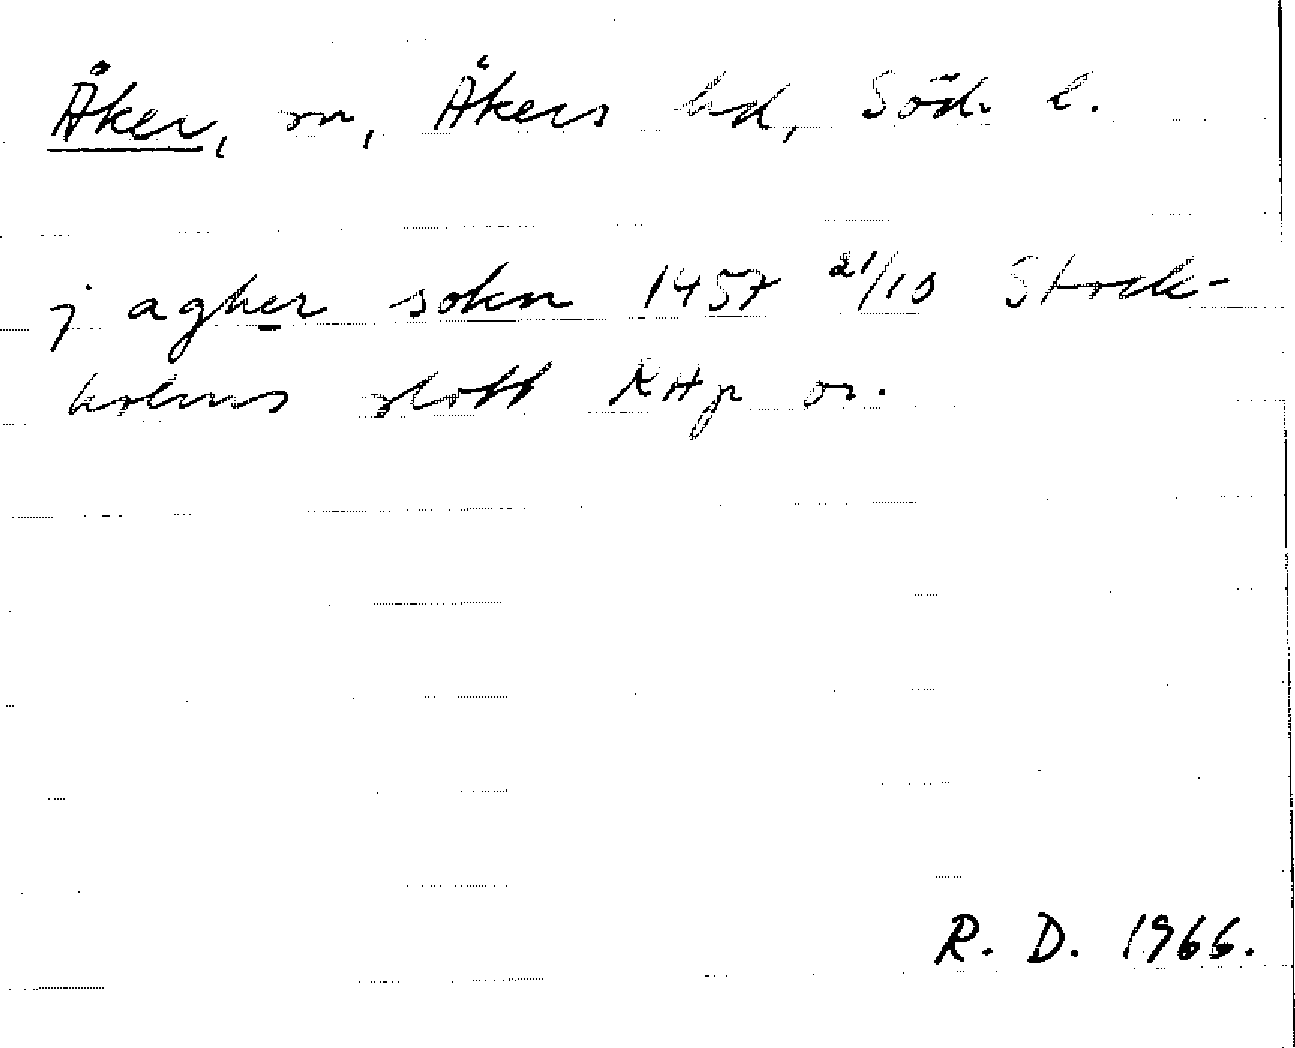 Åker, sn, Åkers hd, Söd. l.
j agher sokn 1457 21/10 Stock-
holms slott RAp or.
R. D. 1966.